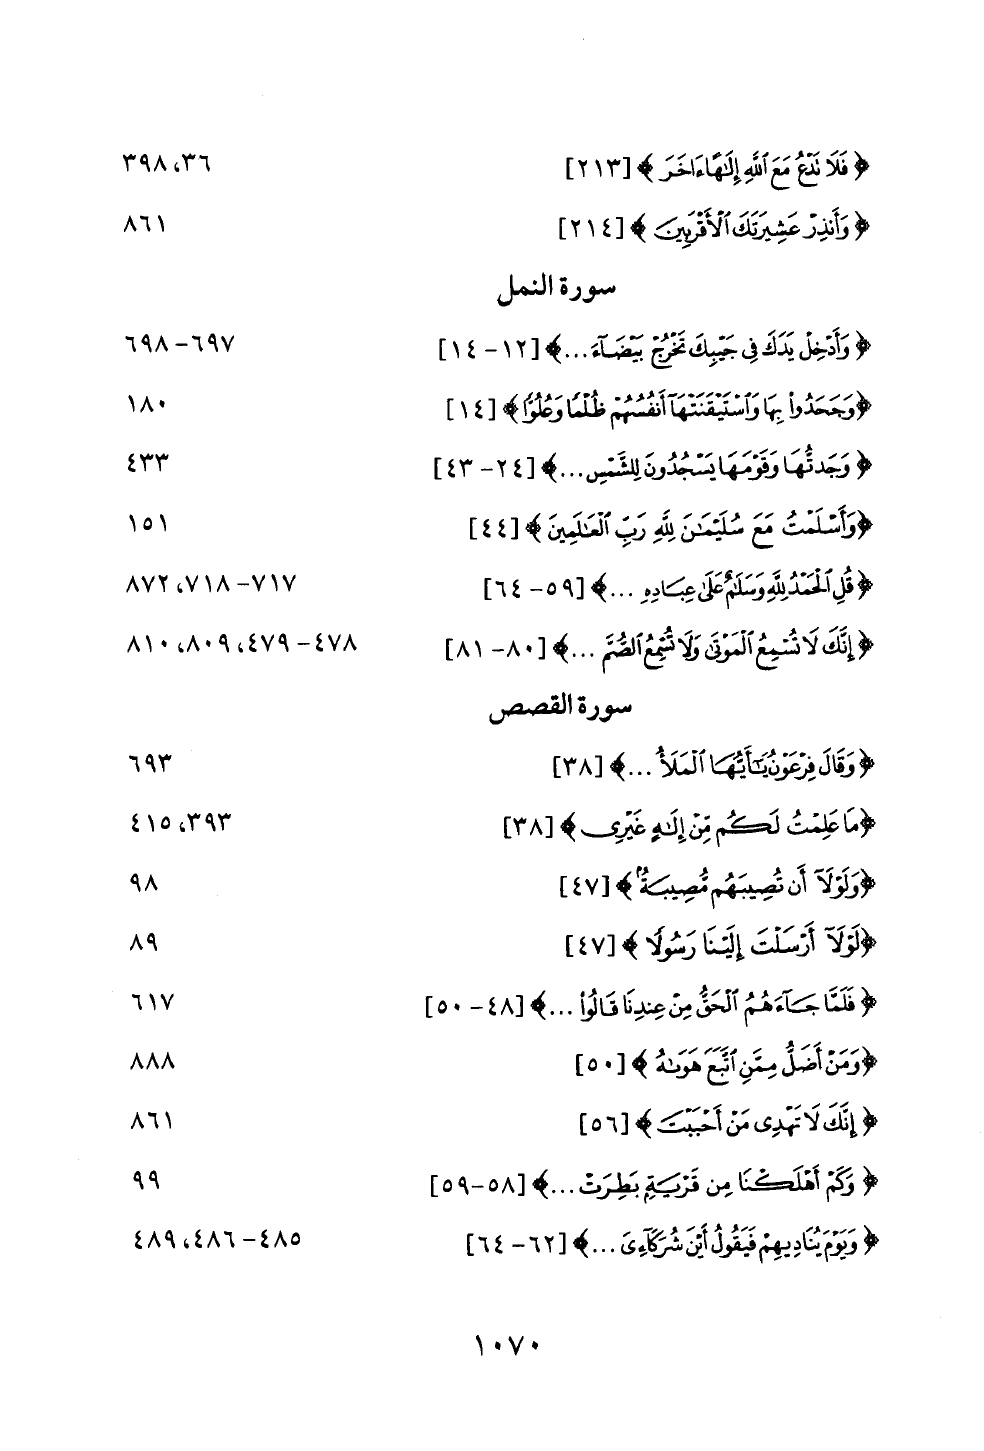 ﴿ فَلَا تَدْعُ مَعَ ٱللَّهِ إِلَٰهًا ءَاخَرَ ﴾ [٢١٣] ٣٦، ٣٩٨
﴿ وَأَنذِرْ عَشِيرَتَكَ ٱلْأَقْرَبِينَ ﴾ [٢١٤] ٨٦١
سورة النمل
﴿ وَأَدْخِلْ يَدَكَ فِى جَيْبِكَ تَخْرُجْ بَيْضَآءَ ...﴾ [١٢ - ١٤] ٦٩٧ - ٦٩٨
﴿وَجَحَدُواْ بِهَا وَٱسْتَيْقَنَتْهَآ أَنفُسُهُمْ ظُلْمًا وَعُلُوًّا﴾ [١٤] ١٨٠
﴿ وَجَدتُّهَا وَقَوْمَهَا يَسْجُدُونَ لِلشَّمْسِ ...﴾ [٢٤ - ٤٣] ٤٣٣
﴿وَأَسْلَمْتُ مَعَ سُلَيْمَٰنَ لِلَّهِ رَبِّ ٱلْعَٰلَمِينَ ﴾ [٤٤] ١٥١
﴿ قُلِ ٱلْحَمْدُ لِلَّهِ وَسَلَٰمٌ عَلَىٰ عِبَادِهِ ...﴾ [٥٩ - ٦٤] ٧١٧ - ٧١٨، ٨٧٢
﴿ إِنَّكَ لَا تُسْمِعُ ٱلْمَوْتَىٰ وَلَا تُسْمِعُ ٱلصُّمَّ ...﴾ [٨٠ - ٨١] ٤٧٨ - ٤٧٩، ٨٠٩، ٨١٠
سورة القصص
﴿ وَقَالَ فِرْعَوْنُ يَٰٓأَيُّهَا ٱلْمَلَأُ ...﴾ [٣٨] ٦٩٣
﴿مَا عَلِمْتُ لَكُم مِّنْ إِلَٰهٍ غَيْرِى ﴾ [٣٨] ٣٩٣، ٤١٥
﴿وَلَوْلَآ أَن تُصِيبَهُم مُّصِيبَةٌۢ ﴾ [٤٧] ٩٨
﴿لَوْلَآ أَرْسَلْتَ إِلَيْنَا رَسُولًا ﴾ [٤٧] ٨٩
﴿ فَلَمَّا جَآءَهُمُ ٱلْحَقُّ مِنْ عِندِنَا قَالُواْ ...﴾ [٤٨ - ٥٠] ٦١٧
﴿وَمَنْ أَضَلُّ مِمَّنِ ٱتَّبَعَ هَوَىٰهُ ﴾ [٥٠] ٨٨٨
﴿ إِنَّكَ لَا تَهْدِى مَنْ أَحْبَبْتَ ﴾ [٥٦] ٨٦١
﴿ وَكَمْ أَهْلَكْنَا مِن قَرْيَةٍ بَطِرَتْ ...﴾ [٥٨ - ٥٩] ٩٩
﴿ وَيَوْمَ يُنَادِيهِمْ فَيَقُولُ أَيْنَ شُرَكَآءِىَ ...﴾ [٦٢ - ٦٤] ٤٨٥ - ٤٨٦، ٤٨٩
١٠٧٠